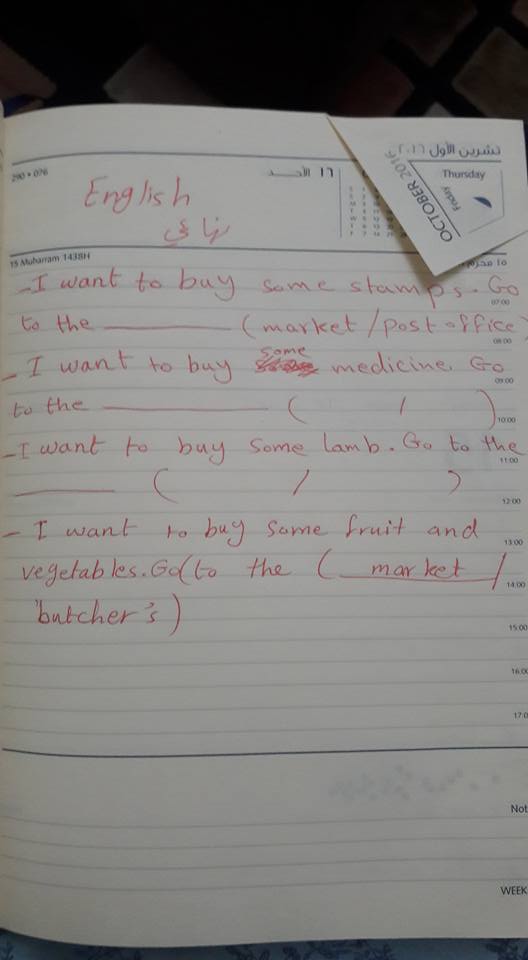 تشرين الأول ٢٠١٦
Thursday
Friday
OCTOBER 2016
290 • 076
١٦ الأحـــد
English
نهائي
15 Muharram 1438H
١٥ محرم
- I want to buy some stamps. Go
07:00
to the ______ (market / post office)
08:00
- I want to buy some medicine. Go
09:00
to the ______ ( / )
10:00
- I want to buy some lamb. Go to the
11:00
______ ( / )
12:00
- I want to buy some fruit and
13:00
vegetables. Go to the ( market /
14:00
butcher's)
15:00
16:00
17:0
Not
WEEK